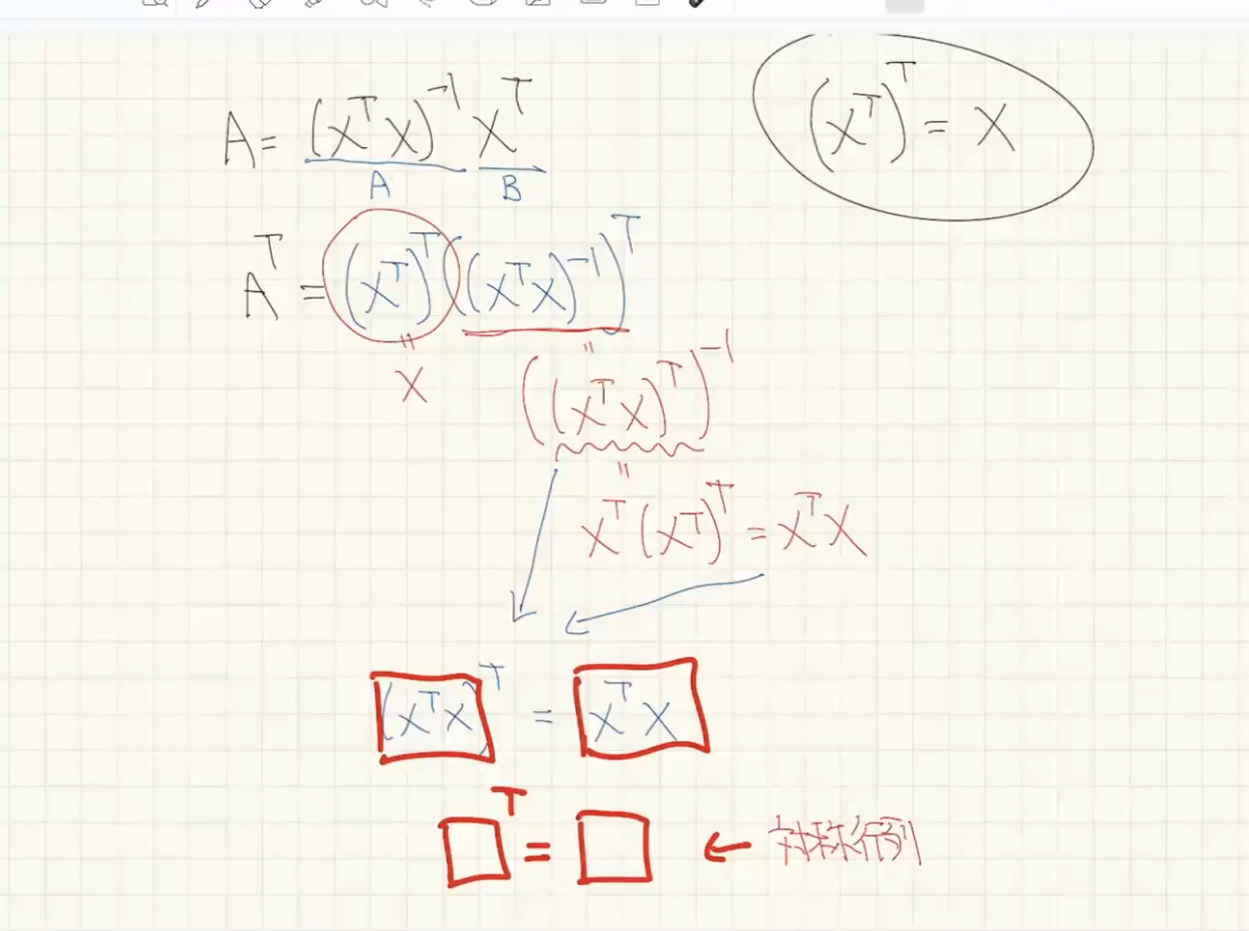 A = (X^T X)^{-1} X^T
A B
(X^T)^T = X
A^T = (X^T)^T ((X^T X)^{-1})^T
=
X
=
((X^T X)^T)^{-1}
=
X^T (X^T)^T = X^T X
(X^T X)^T = X^T X
□^T = □ ← 対称行列